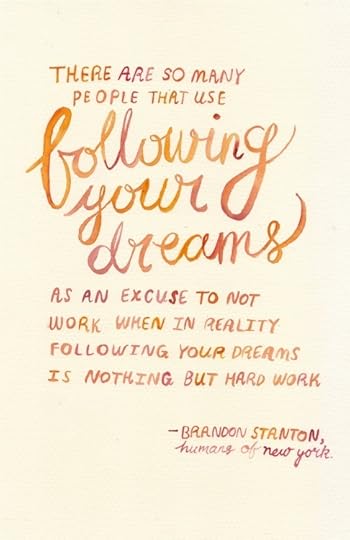 THERE ARE SO MANY
PEOPLE THAT USE
following
your
dreams
AS AN EXCUSE TO NOT
WORK WHEN IN REALITY
FOLLOWING YOUR DREAMS
IS NOTHING BUT HARD WORK
-BRANDON STANTON,
humans of new york.